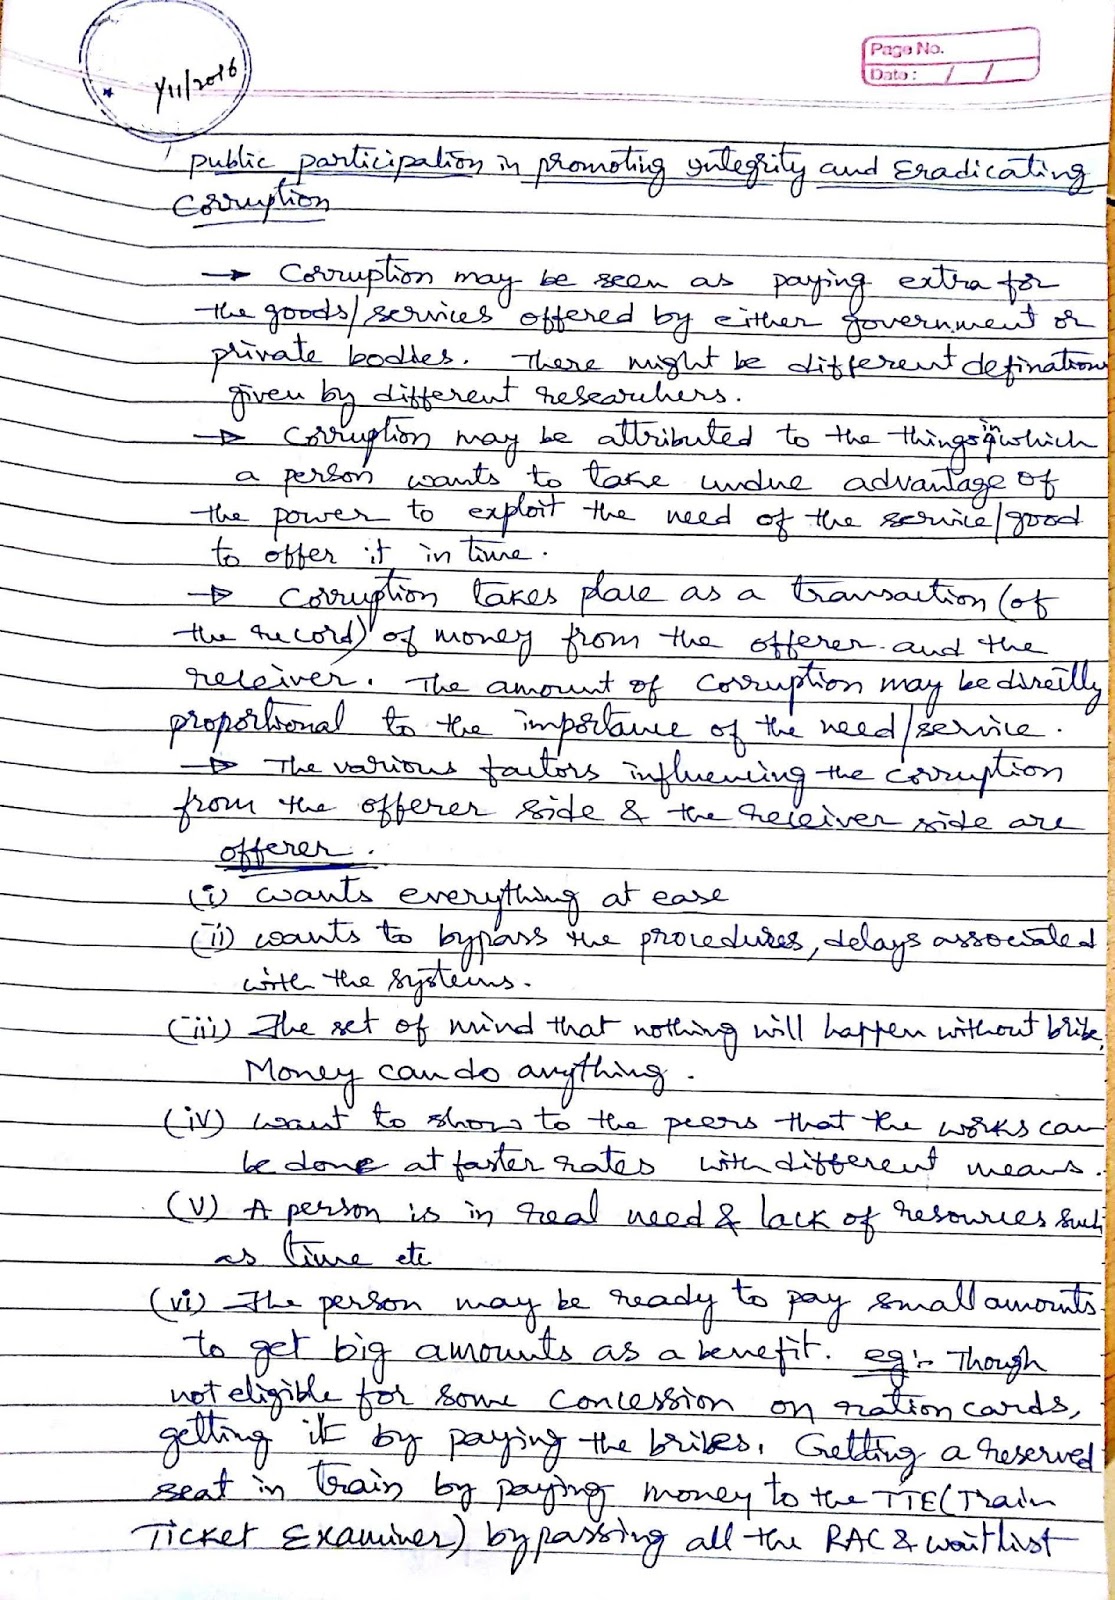 1/11/2016
Page No.
Date : / /
public participation in promoting integrity and Eradicating
Corruption
→ Corruption may be seen as paying extra for
the goods/services offered by either government or
private bodies. There might be different defination
given by different researchers.
→ Corruption may be attributed to the things in which
a person wants to take undue advantage of
the power to exploit the need of the service/good
to offer it in time.
→ Corruption takes place as a transaction (of
the record) of money from the offerer and the
receiver. The amount of corruption may be directly
proportional to the importance of the need/service.
→ The various factors influencing the corruption
from the offerer side & the receiver side are
offerer.
(i) wants everything at ease
(ii) wants to bypass the procedures, delays associated
with the systems.
(iii) The set of mind that nothing will happen without bribe.
Money can do anything.
(iv) want to show to the peers that the works can
be done at faster rates with different means.
(v) A person is in real need & lack of resources such
as time etc
(vi) The person may be ready to pay small amounts
to get big amounts as a benefit. eg:- Though
not eligible for some concession on ration cards,
getting it by paying the bribes. Getting a reserved
seat in train by paying money to the TTE (Train
Ticket Examiner) bypassing all the RAC & waitlist